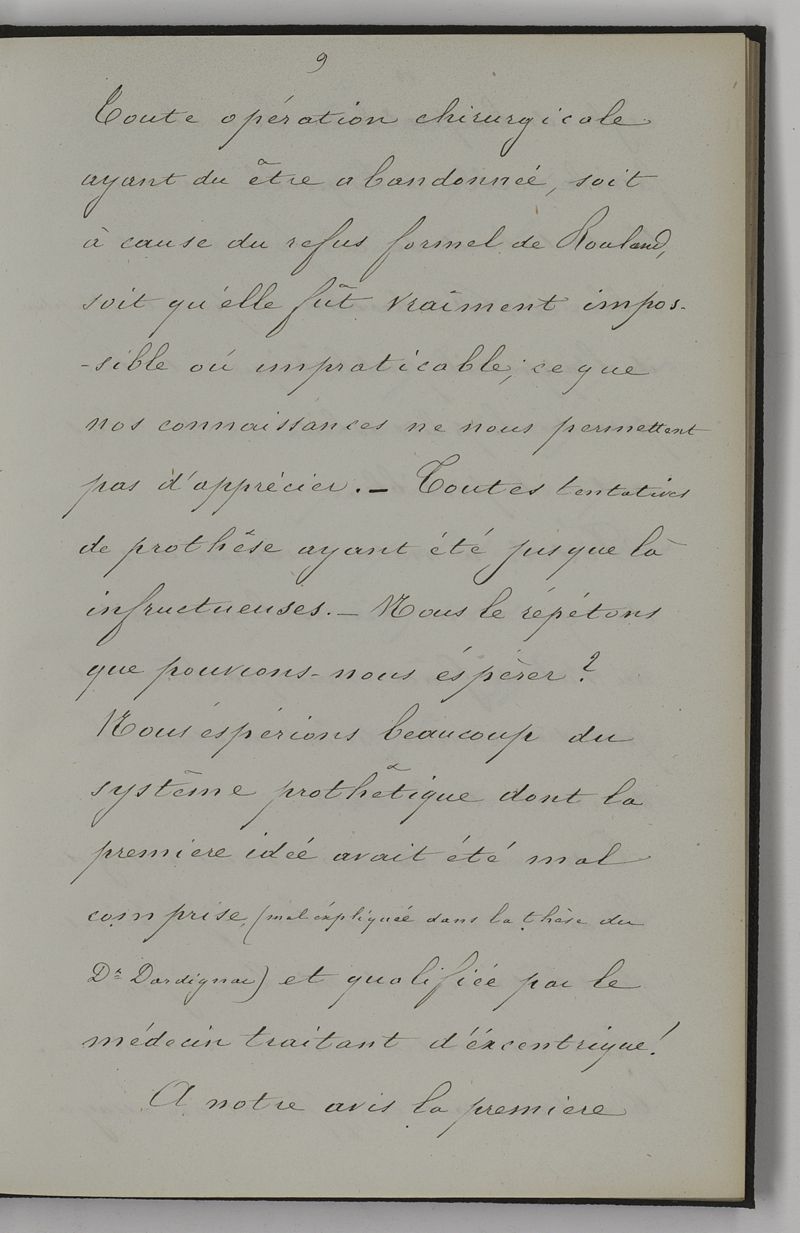 9
Toute opération chirurgicale
ayant du être abandonneé, soit
à cause du refus formel de Rouland,
soit qu'elle fût vraiment impos-
-sible oú impraticable; ce que
nos connaissances ne nous permettent
pas d'apprécier. — Toutes tentatives
de prothèse ayant été jusque là
infructueuses. — Nous le répétons
que pouvions-nous éspèrer ?
Nous éspérions beaucoup du
système prothètique dont la
premiere ideé avait été mal
comprise, (mal éxpliqueé dans la thèse du
Dr Dardignac) et qualifieé par le
médecin traitant d'éxcentrique!
A notre avis la premiere